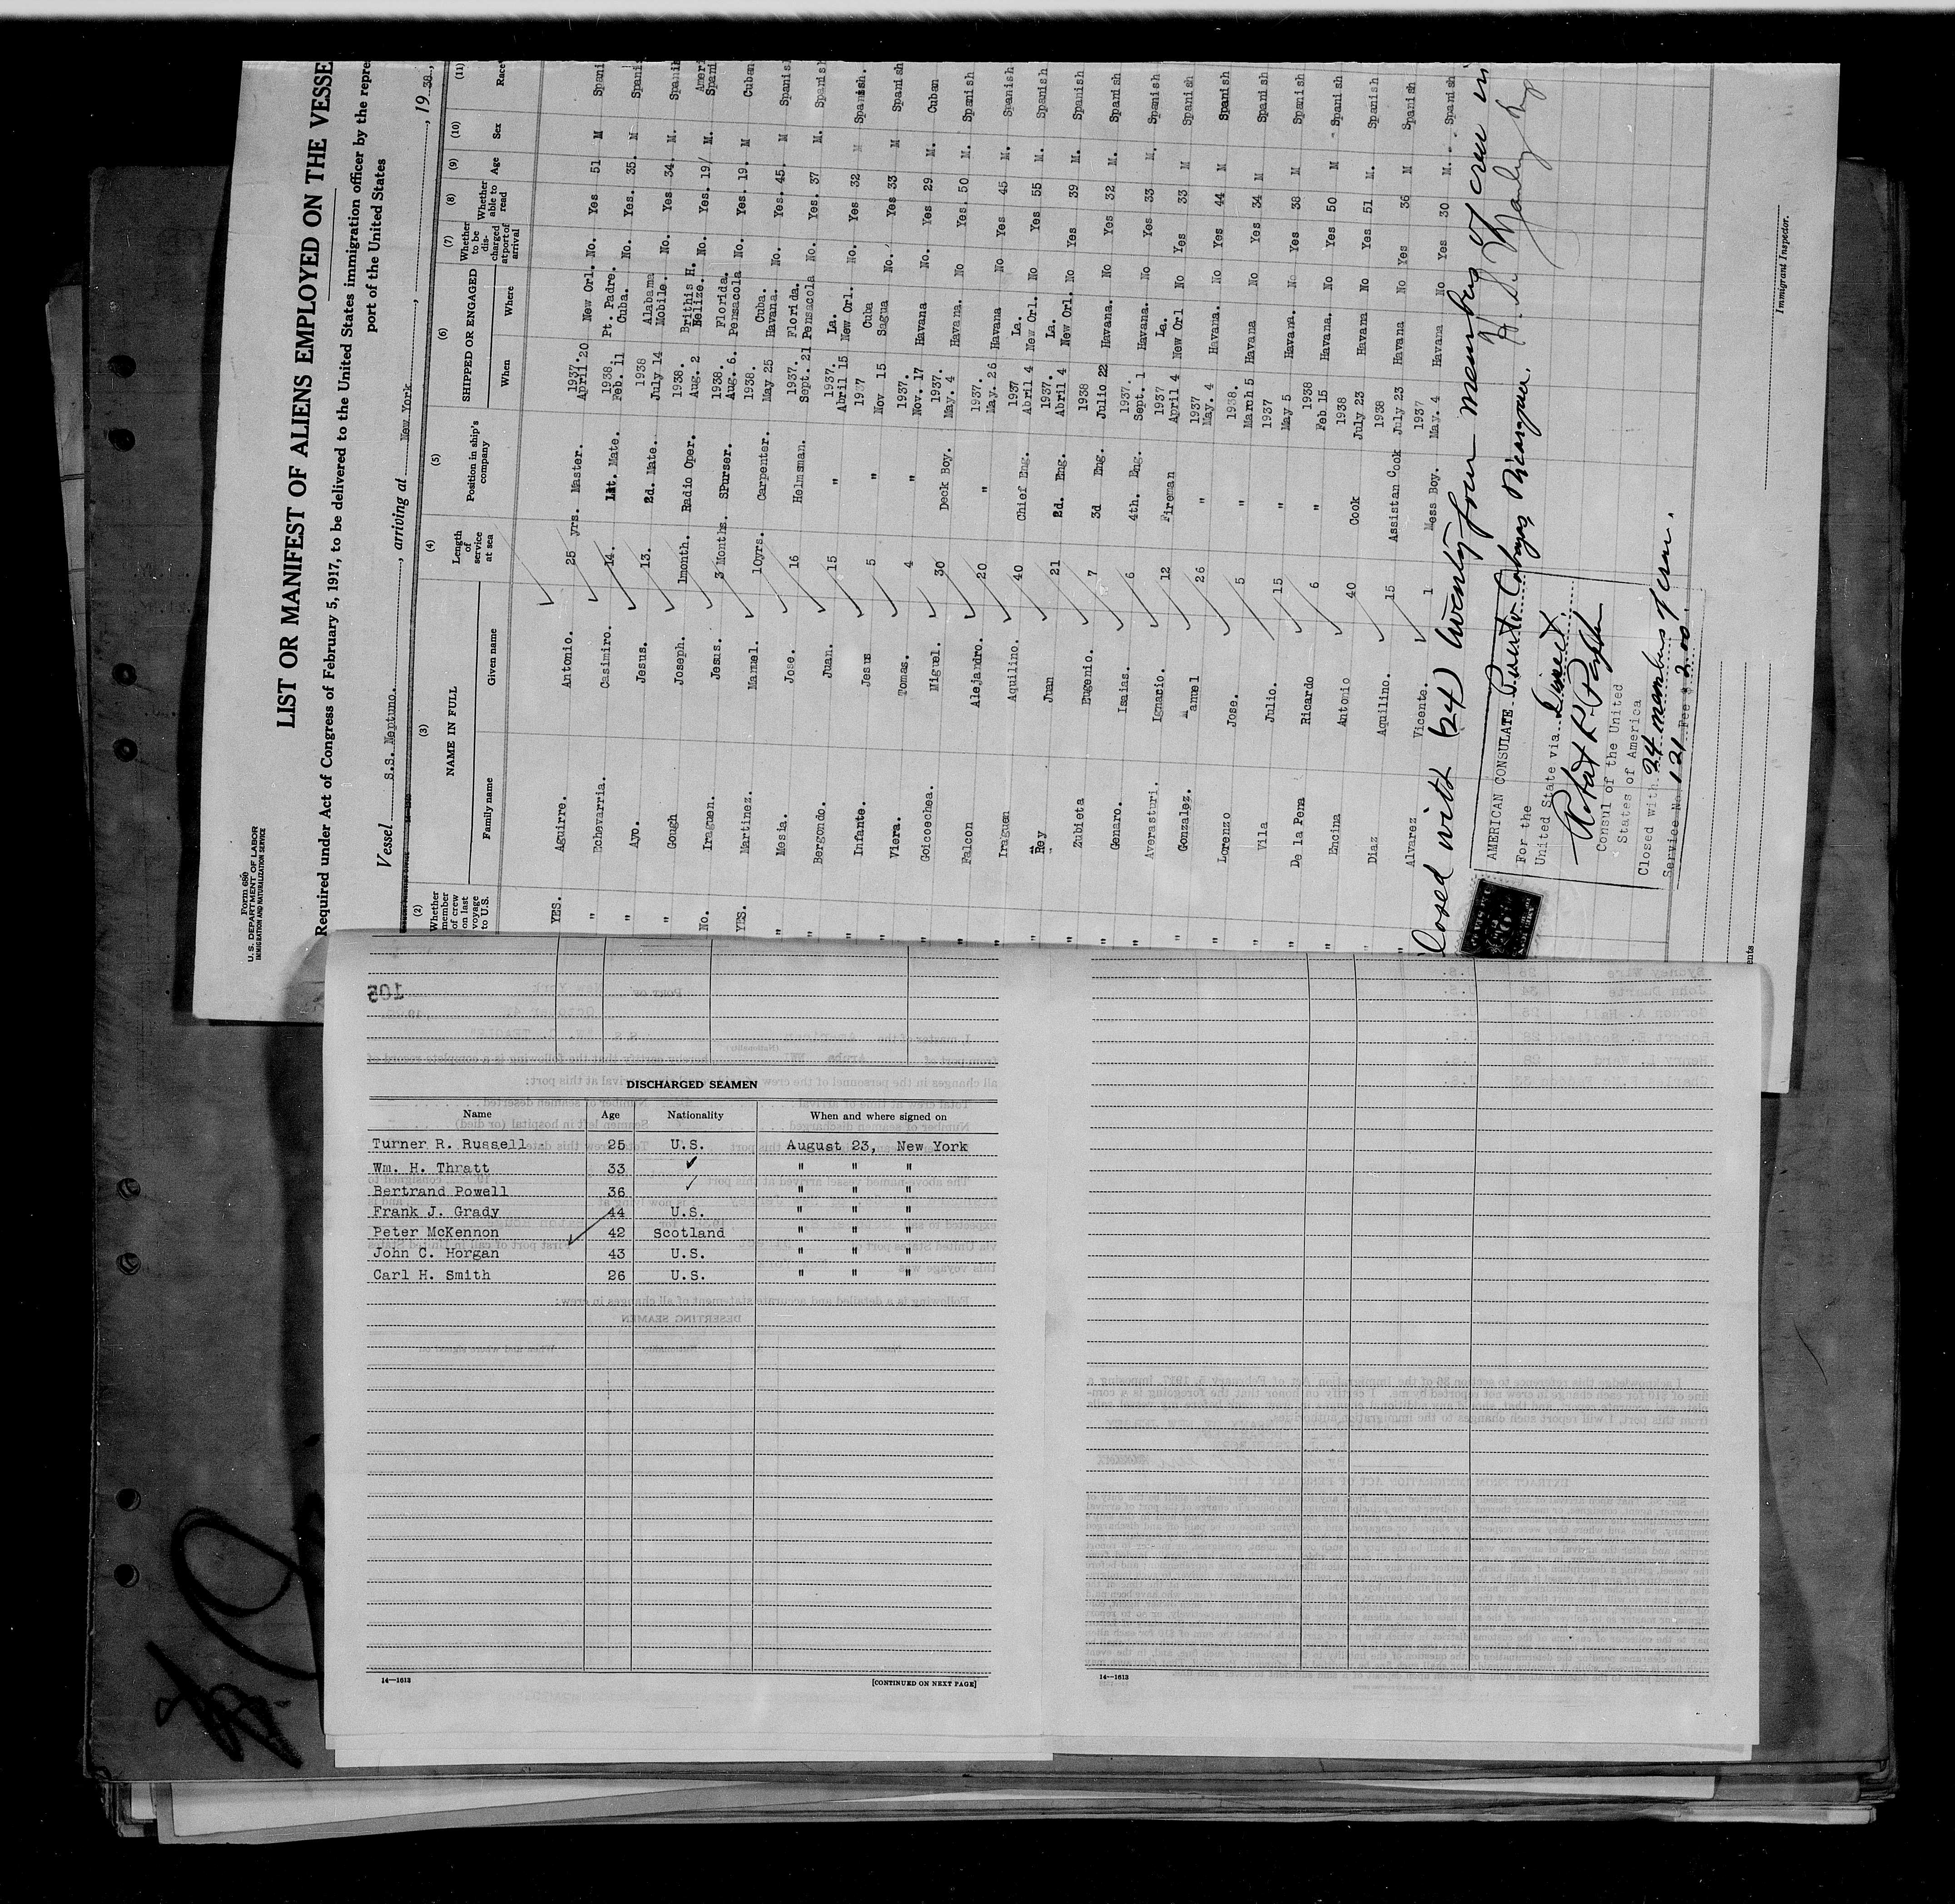 Form 680
U. S. DEPARTMENT OF LABOR
IMMIGRATION AND NATURALIZATION SERVICE
LIST OR MANIFEST OF ALIENS EMPLOYED ON THE VESSE
Required under Act of Congress of February 5, 1917, to be delivered to the United States immigration officer by the repre
port of the United States
Vessel S.S. Neptuno. , arriving at New York , 19 38,
(2) (3) (4) (5) (6) (7) (8) (9) (10) (11)
Whether member of crew on last voyage to U.S. NAME IN FULL Family name Given name Length of service at sea Position in ship's company SHIPPED OR ENGAGED When Where Whether to be discharged at port of arrival Whether able to read Age Sex Race
YES. Aguirre. Antonio. 25 yrs. Master. 1937. April 20 New Orl. No. Yes 51 M Spani
" Echevarria. Casimiro. 14. Mate. 1938. Feb. 11 Pt. Padre. Cuba. No. Yes. 35. M Spani
" Ayo. Jesus. 13. 2d. Mate. 1938 July 14 Alabama Mobile. No. Yes. 34. M. Spani
" Gough Joseph. 1month. Radio Oper. 1938. Aug. 2 Brithis H. Belize. No. Yes. 19/ M. Ameri Spani
No. Iraguen. Jesus. 3 Months. SPurser. 1938. Aug. 6. Florida. Pensacola No. Yes. 19. M Cuban
YES. Martinez. Manuel. 10yrs. Carpenter. 1938. May 25 Cuba. Havana. No. Yes. 45. M Spanis
" Mesia. Jose. 16 Helmsman. 1937. Sept. 21 Florida. Pensacola No. Yes. 37 M. Spanish
" Bergondo. Juan. 15 " 1937. Abril 15 La. New Orl. No. Yes 32 M Spanish.
" Infante. Jesus 5 " 1937 Nov. 15 Cuba Sagua No. Yes 33 M Spanish
" Viera. Tomas. 4 " 1937. Nov. 17 Havana No. Yes 29 M. Cuban
" Goicoechea. Miguel. 30 Deck Boy. 1937. May. 4 Havana. No Yes. 50 M. Spanish
" Falcon Alejandro. 20 " 1937. May. 26 Havana No Yes 45 M. Spanish
" Iraguen Aquilino. 40 Chief Eng. 1937 Abril 4 La. New Orl. No Yes 55 M. Spanish
" Rey Juan 21 2d. Eng. 1937. Abril 4 La. New Orl. No Yes 39 M. Spanish
" Zubieta Eugenio. 7 3d Eng. 1938 Julio 22 Havana. No Yes 32 M. Spanish
" Genaro. Isaias. 6 4th. Eng. 1937. Sept. 1 Havana. No Yes 33 M. Spanish
" Averasturi. Ignacio. 12 Fireman 1937 April 4 La. New Orl No Yes 33 M Spanish
" Gonzalez. Manuel 26 " 1937 May. 4 Havana. No Yes 44 M Spanish
" Lorenzo Jose. 5 " 1938. March 5 Havana No Yes 34 M Spanish
" Vila Julio. 15 " 1937 May 5 Havana. No Yes 38 M Spanish
" De la Pena Ricardo 6 " 1938 Feb 15 Havana. No Yes 50 M Spanish
" Encina Antonio 40 Cook 1938 July 23 Havana No Yes 51 M. Spanish
" Diaz Aquilino. 15 Assistan Cook 1938 July 23 Havana No Yes 36 M Spanish
" Alvarez Vicente. 1 Mess Boy. 1937 May. 4 Havana No Yes 30 M. Spanish
losed with (24) twenty four members of crew in
AMERICAN CONSULATE Puerto Cabezas Nicaragua.
For the
United State via Direct
Consul of the United
States of America
Closed with 24 members of crew.
Service No. 121 Fee $ 2.00.
Immigrant Inspector.
ents
105
DISCHARGED SEAMEN
Name Age Nationality When and where signed on
Turner R. Russell 25 U.S. August 23, New York
Wm. H. Thratt 33 " " "
Bertrand Powell 36 " " "
Frank J. Grady 44 U.S. " " "
Peter McKennon 42 Scotland " " "
John C. Horgan 43 U.S. " " "
Carl H. Smith 26 U.S. " " "
14—1613 [CONTINUED ON NEXT PAGE]
14—1613